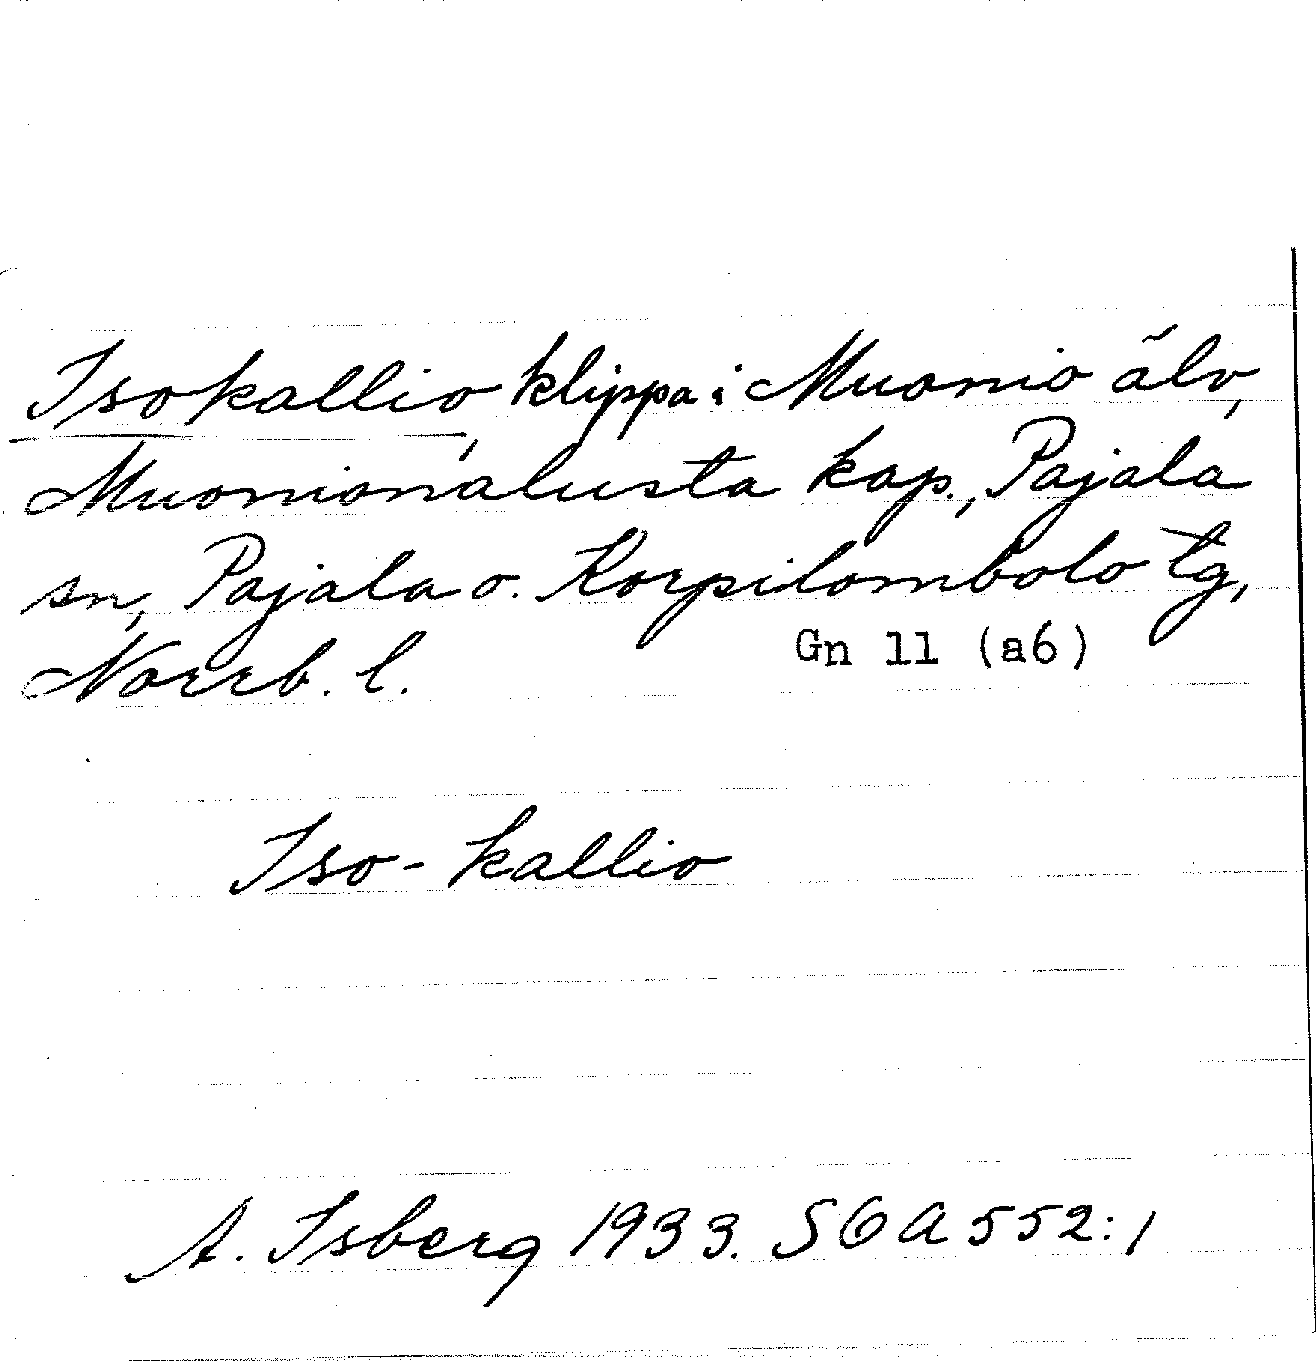 Isokallio, klippa i Muonio älv,
Muonionalusta kap., Pajala
sn, Pajala o. Korpilombolo tg,
Norrb. l. Gn 11 (a6)
Iso-kallio
A. Isberg 1933. SOA 552:1